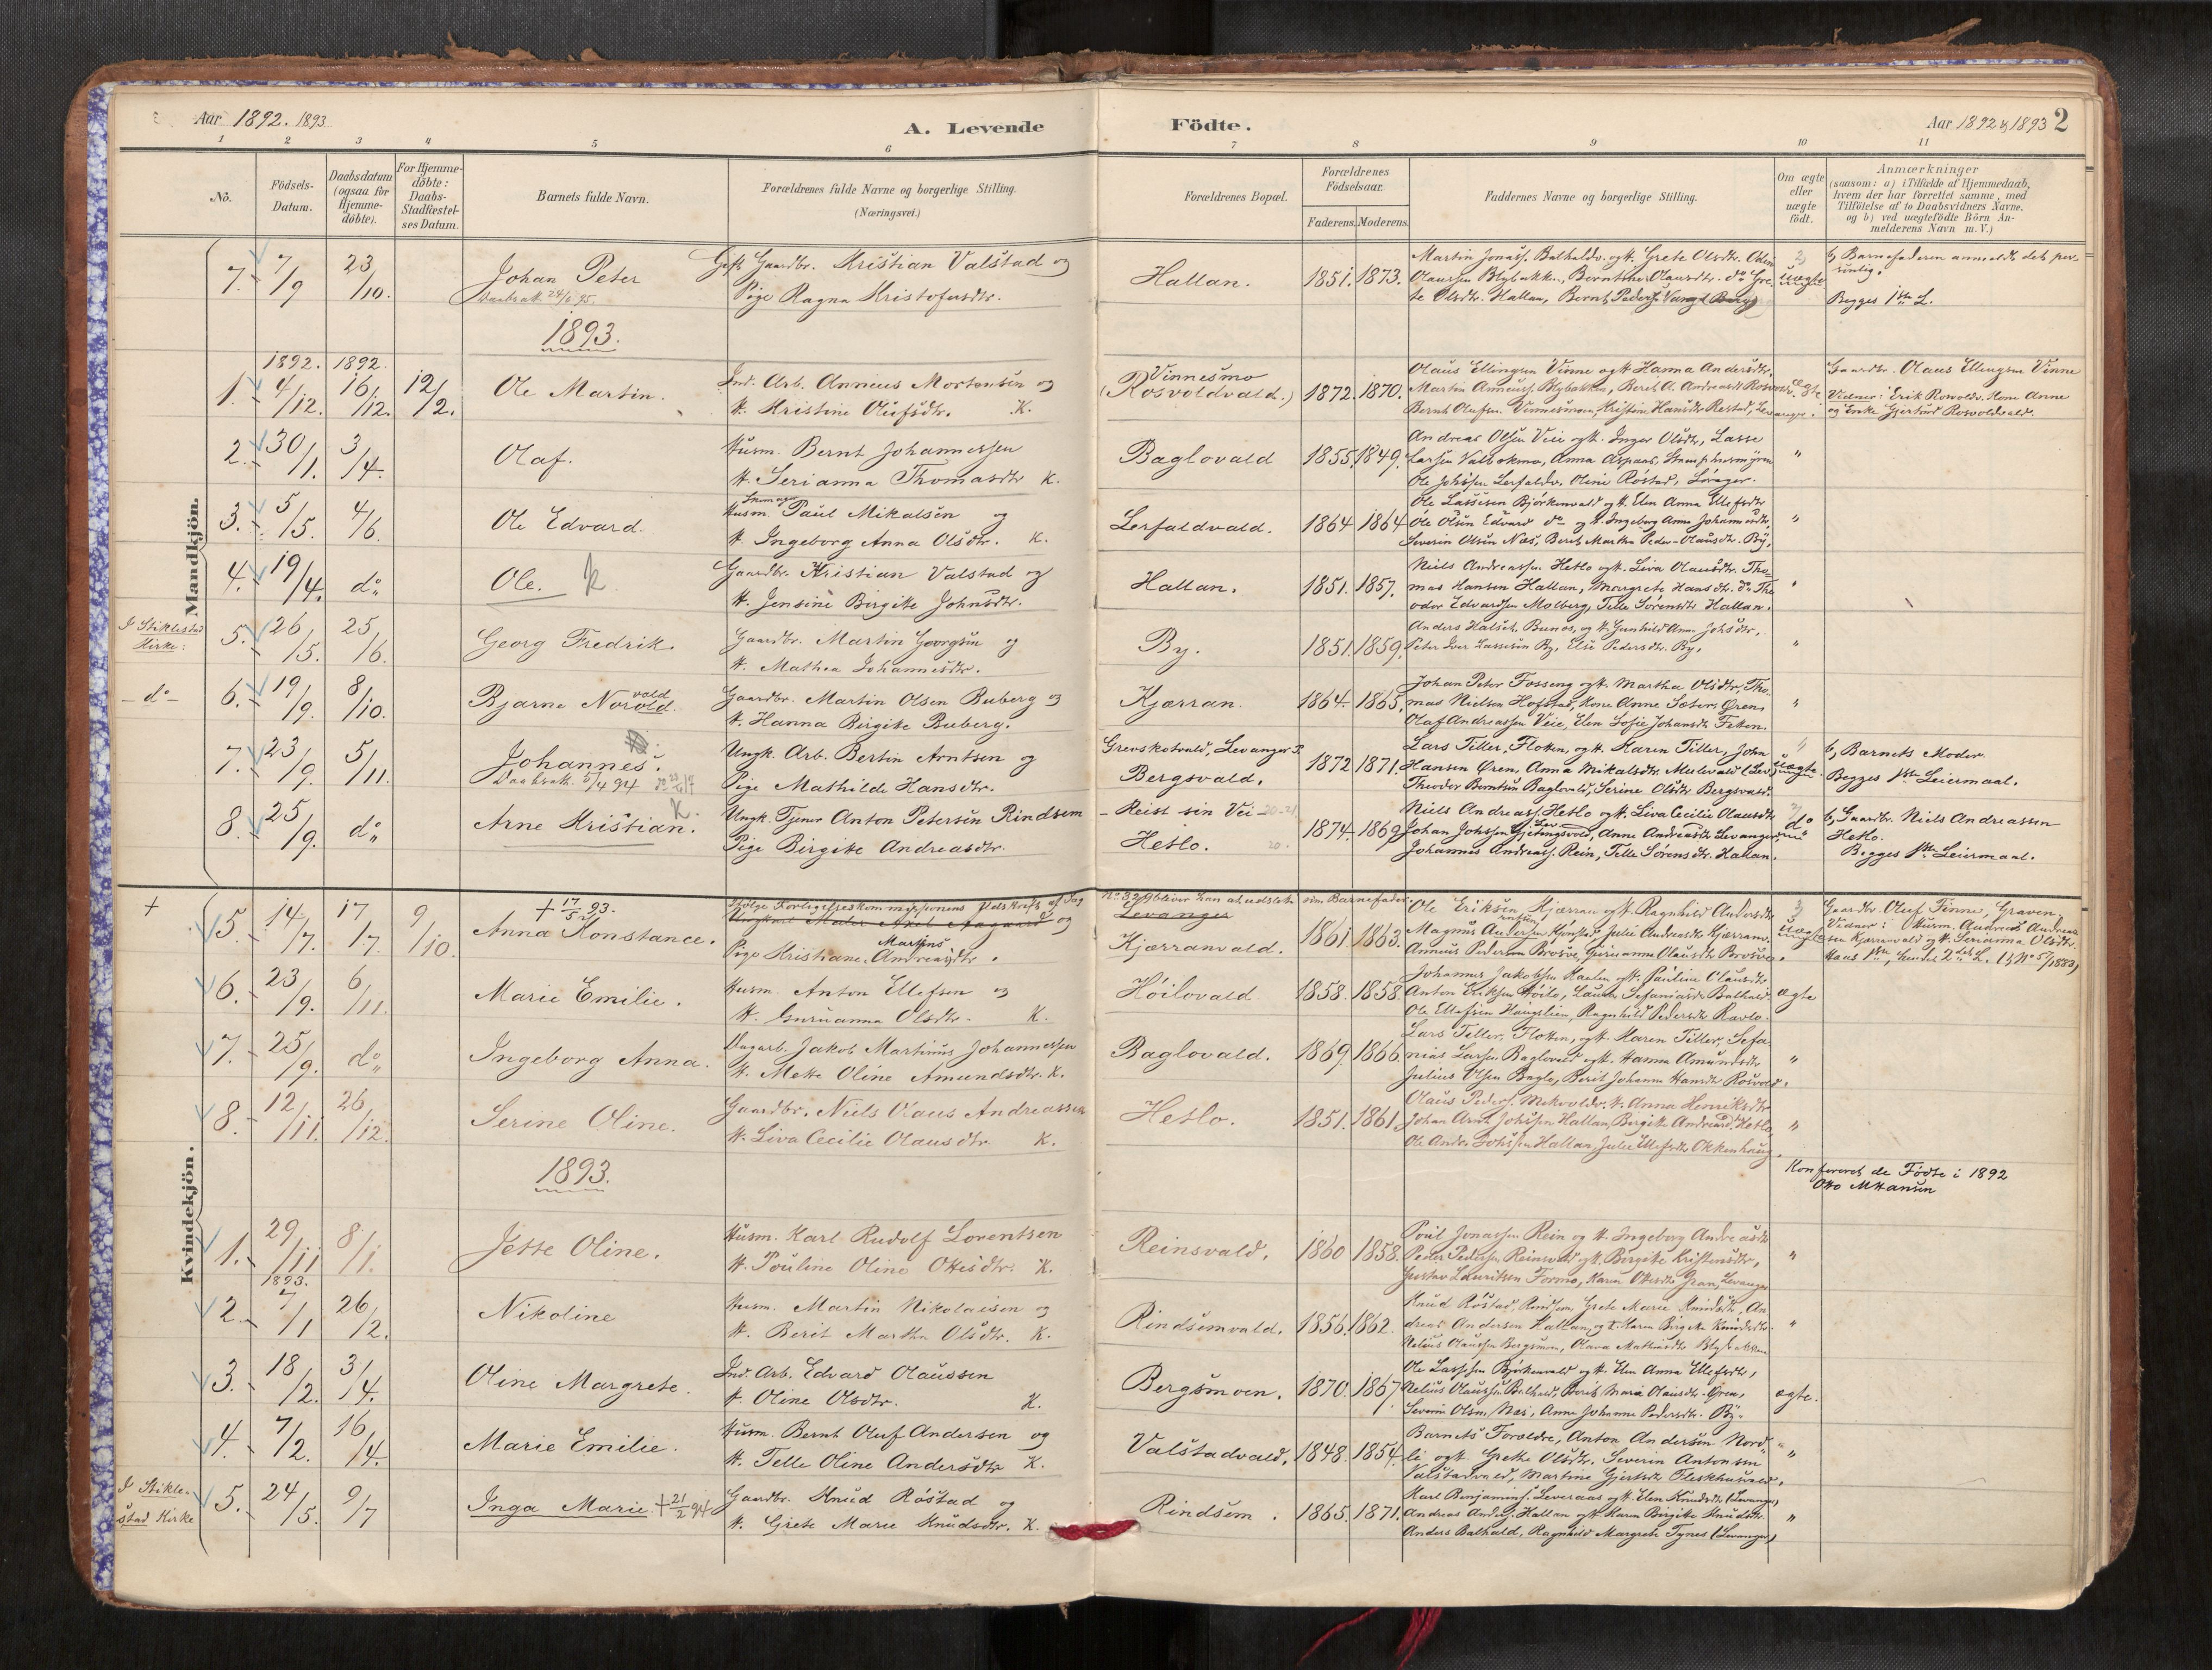 Aar 1892. 1893
A. Levende Födte.
Aar 1892 & 1893 2
1 2 3 4 5 6 7 8 9 10 11
No.
Födsels-
Datum.
Daabsdatum
(ogsaa for
Hjemme-
döbte).
For Hjemme-
döbte:
Daabs-
Stadfæstel-
ses Datum.
Barnets fulde Navn.
Forældrenes fulde Navne og borgerlige Stilling.
(Næringsvei.)
Forældrenes Bopæl.
Forældrenes
Födselsaar.
Faderens. Moderens.
Faddernes Navne og borgerlige Stilling.
Om ægte
eller
uægte
födt.
Anmærkninger
(saasom: a) i Tilfælde af Hjemmedaab,
hvem der har forrettet samme, med
Tilföielse af to Daabsvidners Navne.
og b) ved uægtefödte Börn An-
melderens Navn m. V.)
Mandkjön.
7. 7/9 23/10.
Johan Peter
Daabsatt. 24/6 95.
Gift Gaardbr. Kristian Valstad og
Pige Ragna Kristofersdtr.
Hallan.
1851. 1873.
Martin Jonass. Balhaldv. og K. Grete Olsdtr.
Olaussen Blybakken,
te Olsdtr. Hallan, Bernt Peders.
uægte
b, Barnefaderen anmeldte det per-
sonlig.
Begges 1ste L.
1893.
1892. 1892
1. 4/12. 16/12. 12/2.
Ole Martin.
Ind. Arb. Anneus Mortensen og
K. Kristine Olufsdtr. K.
Vinnesmo
(Rosvoldvald.)
1872. 1870.
Olaus Ellingsen Vinne og K. Hanna Andersdtr,
Martin Anneuss. Blybakken, Berit A. Andreasdt
Bernt Olufsen Vinnesmoen, Kristine Hansdtr Restad, Levanger.
Ægte
Gaardbr. Olaus Ellingsen Vinne
Vidner: Erik Rosvoldv. Kone Anne
og Enke Gjertrud Rosvoldvald.
2. 30/1. 3/4.
Olaf.
Husm. Bernt Johannessen
K. Serianna Thomasdtr K.
Baglovald
1855. 1849.
Andreas Olsen Veie og K. Inger Olsdtr, Lasse
Larsen Valbekmo, Anna Aspaas,
Ole Johssen Lerfaldv. Oline Röstad,
"
3. 5/5. 4/6.
Ole Edvard.
Husm. Paul Mikalsen og
K. Ingeborg Anna Olsdtr. K.
Lerfaldvald.
1864 1864
Ole Lassesen Björkenvald og K. Elen Anna Ellefsdtr
Ole Olsen Edvard do og K. Ingeborg Anna Johannesdtr,
Severin Olsen Næs, Berit Martha Peder-Olausdtr. By,
"
4. 19/4. do
Ole. K
Gaardbr. Kristian Valstad og
K. Jensine Birgitte Johnsdtr.
Hallan.
1851. 1857.
Niels Andreassen Hetlo og K. Liva Olausdtr. Tho-
mas Hansen Hallan, Margrete Hansdtr. do The-
odor Edvardsen Molberg, Telle Sörensdtr Hallan.
"
I Stiklestad
Kirke:
5. 26/5. 25/6.
Georg Fredrik.
Gaardbr. Martin Georgsen og
K. Mathea Johannesdtr.
By.
1851. 1859.
Anders Halset, Bunes, og K. Gunhild Anna Johsdtr,
Peter Iver Lassesen By, Else Pedersdtr. By,
"
- do -
6. 19/9. 8/10.
Bjarne Norold. vald
Gaardbr. Martin Olsen Buberg og
K. Hanna Birgitte Buberg.
Kjærran.
1864. 1865.
Johan Peter Fosseng og K. Martha Olsdtr, Tho-
mas Nielsen Hofstad, Kone Anne Sæter, Ören,
Olaf Andreassen Veie, Elen Sofie Johansdtr
"
7. 23/9. 5/11.
Johannes.
Daabsatt. 5/4 94
Ungk. Arb. Bertin Arntsen og
Pige Mathilde Hansdtr.
Grevskotvald, Levanger P.
Bergsvald.
1872 1871.
Lars Tiller, Flotten, og K. Karen Tiller, John
Hansen Ören, Anna Mikalsdtr. Mulevald
Theodor Berntsen Baglovald, Serine Olsdtr Bergsvald.
uægte.
b, Barnets Moder.
Begges 1ste Leiermaal.
8. 25/9. do
Arne Kristian. K.
Ungk. Tjener Anton Petersen Rindsem
Pige Birgitte Andreasdtr.
- Reist sin Vei -
Hetlo.
1874. 1869.
Niels Andreass. Hetlo og K. Liva Cecilie Olausdtr
Johan Johssen Gjetingsvold, Anne Andreasdtr Levanger,
Johannes Andreass. Rein, Telle Sörensdtr. Hallan.
do
b, Gaardbr. Niels Andreassen
Hetlo.
Begges 1ste Leiermaal.
Kvindekjön.
†
5. 14/7. 17/7. 9/10.
† 17/5 93.
Anna Konstance.
Ifölge Forligelseskommissionens Udskrift af Dag No 32 bliver han at udslette som Barnefader.
Ungkarl Maler Axel Aagaard og
Pige Kristiane Martins Andreasdtr.
Levanger
Kjærranvald.
1861. 1863.
Ole Eriksen Kjærran og K. Ragnhild Andersdtr
Magnus Andersen Julie Andreasdt Kjærranv.
Anneus Pedersen Brosve, Olausdtr Brosve.
uægte
Gaardbr. Oluf Finne, Graven.
Vidner: Husm. Andreas Andreas-
sen Kjærranvald og K. Serianna Olsdtr.
Hans 1ste, hendes 2det L. (No 5/1883)
6. 23/9. 6/11.
Marie Emilie.
Husm. Anton Ellefsen og
K. Guruanna Olsdtr. K.
Höilovald
1858. 1858.
Johannes Jakobsen og K. Pauline Olausdtr
Anton Eriksen Höilo, Laura Sefaniasdtr Balhald.
Ole Ellefsen Haugslien, Ragnhild Pedersdtr Ravlo.
ægte
7. 25/9. do
Ingeborg Anna.
Dagarb. Jakob Martinus Johannessen
K. Mette Oline Amundsdtr. K.
Baglovald.
1869. 1866
Lars Tiller, Flotten, og K. Karen Tiller, Sefa-
nias Larsen Baglovald og K. Hanna Amundsdtr
Julius Olsen Baglo, Berit Johanna Hansdtr Rosvold.
"
8. 12/11. 26/12.
Serine Oline.
Gaardbr. Niels Olaus Andreassen
K. Liva Cecilie Olausdtr. K.
Hetlo.
1851. 1861.
Olaus Peders. Mokvoldv. K. Anna Henriksdtr
Johan Arnt Johssen Hallan, Birgitte Andreasd. Hetlo
Ole Andr. Johssen Hallan, Julie Ellefsdtr Okkenhaug.
"
Konfereret de Födte i 1892
Otto M Hansen
1893.
1. 29/11 8/1.
Jette Oline.
Husm. Karl Rudolf Lorentsen
K. Pauline Oline Ottesdtr. K.
Reinsvald.
1860 1858.
Poul Jonassen Rein og K. Ingeborg Andreasdtr
Peder Pedersen Reinsvald og K. Birgitte Kristensdtr,
Gustav Lauritsen Formo, Karen Ottesdtr Gran, Levanger
"
1893.
2. 7/1 26/2.
Nikoline
Husm. Martin Nikolaisen og
K. Berit Martha Olsdtr. K.
Rindsemvald.
1856. 1862.
Knud Röstad, Rindsem, Grete Marie Knudsdtr, An-
dreas Andersen Hallan og K. Karen Birgitte Knudsdtr.
Nelius Olaussen Bergsmoen, Olava Mathiasdtr Blybakken
"
3. 18/2. 3/4.
Oline Margrete.
Ind. Arb. Edvard Olaussen
K. Oline Olsdtr. K.
Bergsmoen.
1870. 1867.
Ole Lassesen Björkenvald og K. Elen Anna Ellefsdtr,
Nelius Olaussen Balhald, Berit Maria Olausdtr. Ören,
Severin Olsen, Næs, Anne Johanna Pedersdtr. By.
ægte.
4. 7/2. 16/4.
Marie Emilie.
Husm. Bernt Oluf Andersen og
K. Telle Oline Andersdtr K.
Valstadvald.
1848. 1854.
Barnets Forældre, Anton Andersen Nord-
li og K. Grethe Olsdtr. Severin Antonsen
Valstadvald, Martine Gjertsdtr
"
I Stikle-
stad Kirke
5. 24/5. 9/7
Inga Marie † 21/2 94
Gaardbr. Knud Röstad og
K. Grete Marie Knudsdtr. K.
Rindsem.
1865. 1871.
Karl Benjamins. Leveraas og K. Elen Knudsdtr (Levanger)
Andreas Anders. Hallan og K. Karen Birgitte Knudsdtr.
Anders Balhald, Ragnhild Margrete Tynes (Levanger)
"